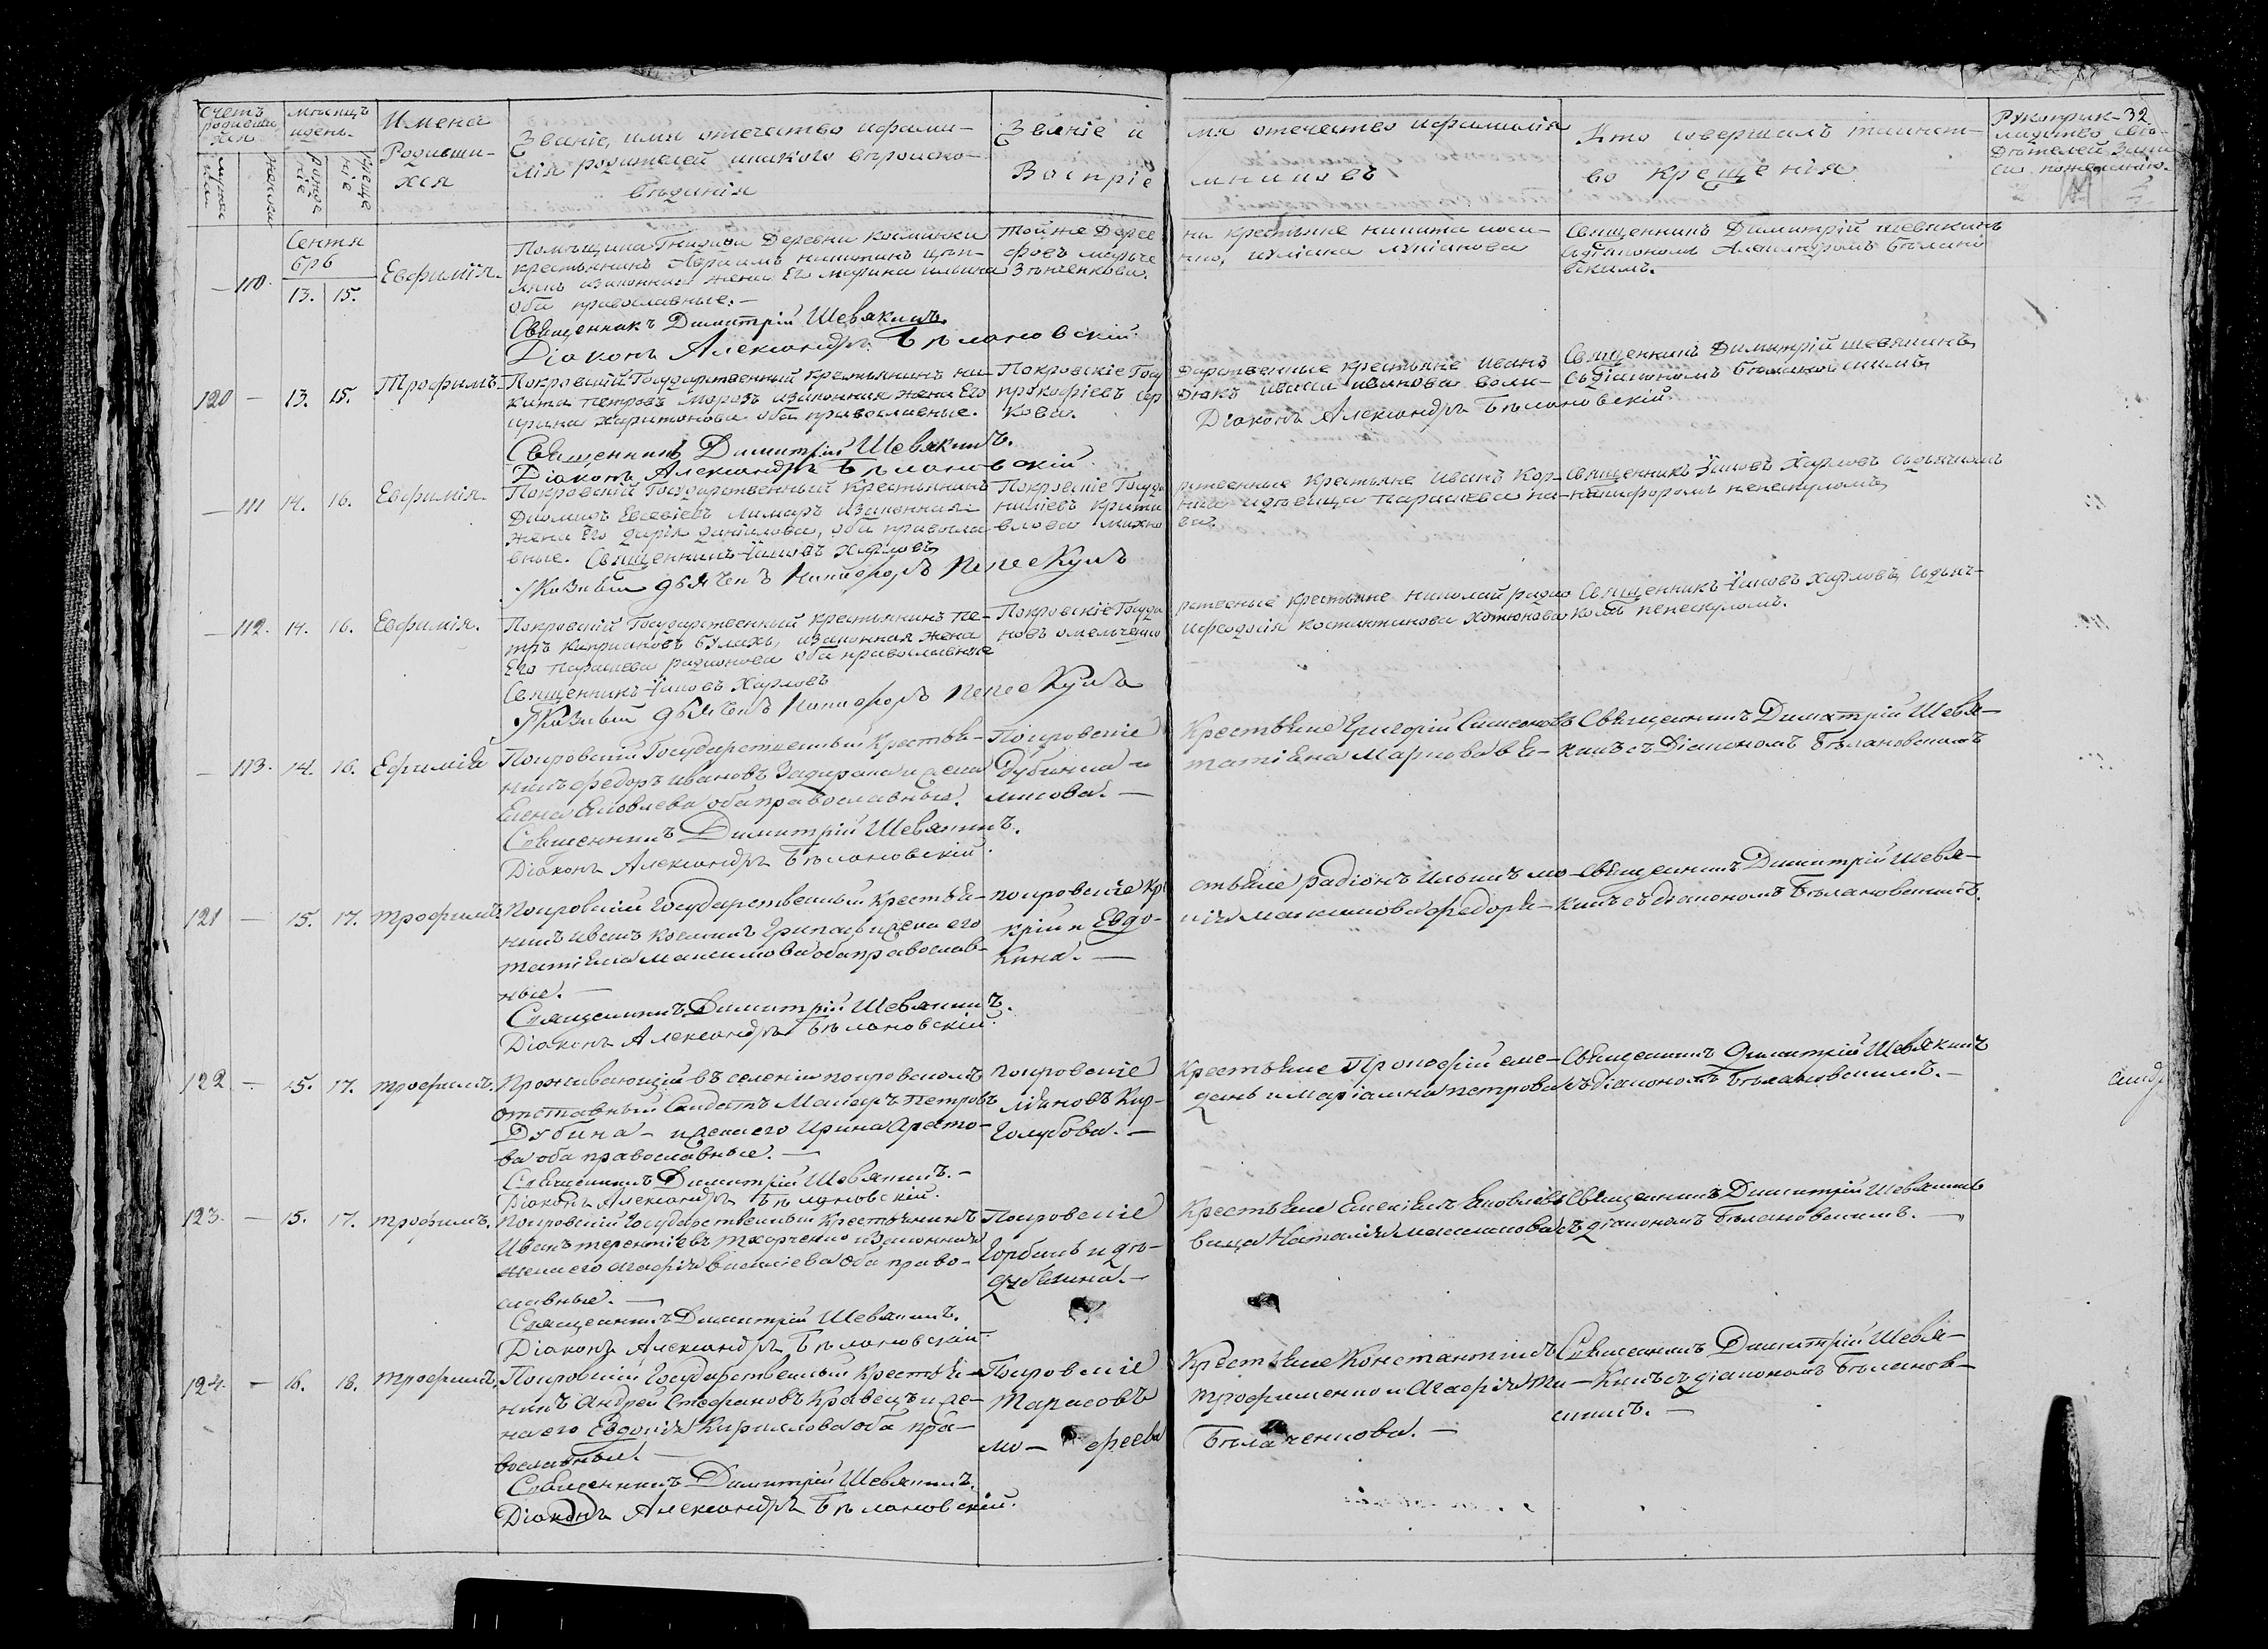 Счетъ родивши хся
мѣсяцъ идень.
мужеска
женска
рожде ніе
креще ніе
Имена Родивши- хся
Званіе, имя отечество ифами-
лія родителей икакого вѣроиспо-
вѣданія
Званіе и
мя отечество ифамилія
Воспріе
мниковъ
Кто совершалъ таинст-
во крещенія
Рукоприк- 32
ладство сви-
дѣтелей запи
си пожеланію.
Сентя
брь
— 110. 13. 15. Евфимія.
Помѣщика Деревни Косминки
крестьянинъ Авраамъ никитинъ
изаконная жена Его Марина
оба православные. —
Священникъ Димитрій Шевякинъ
Діаконъ Александръ Бѣлановскій.
тойже Дерев
ни крестьяне никита
Священникъ Димитрій шевякинъ
съдіакономъ Александромъ Бѣлано
вскимъ.
120 — 13. 15. Трофимъ.
Покровскій Государственный крестьянинъ ни-
кита петровъ Морозъ изаконная жена Его
ирина Харитонова оба православные.
Священникъ Димитрій Шевякинъ.
Діаконъ Александръ Бѣлановскій.
Покровскіе Госу
дарственные крестьяне иванъ
прокофіевъ сер
дюкъ
кова.
Діаконъ Александръ Бѣлановскій.
Священникъ Димитрій шевякинъ
съдіакономъ Бѣлановскимъ
— 111 14. 16. Евфимія.
Покровскій Государственный Крестьянинъ
Диомидъ Евсевіевъ лимарь изаконная
жена Его дарія данілова, оба правосла-
вные. Священникъ Іаковъ Харловъ
Указный дьячекъ Никифоръ Пепескулъ
Покровскіе Госуда
рственные крестьяне Иванъ Кор-
нѣевъ
идѣвица параскева па-
влова махно
ва.
Священникъ Іаковъ Харловъ съдьячкомъ
никифоромъ пепескуломъ
— 112. 14. 16. Евфимія.
Покровскій Государственный крестьянинъ пе-
тръ киприановъ Булахъ, изаконная жена
Его параскева радионова оба православные
Священникъ Іаковъ Харловъ
Указный дьячекъ Никифоръ Пепескулъ
Покровскіе Госуда
рственые крестьяне николай радио
новъ омельченко
ифеодосія костантинова хотюнова
Священникъ Іаковъ Харловъ, съдьяч-
комъ пепескуломъ.
— 113. 14. 16. Ефимія
Покровскій Государственный крестья-
нинъ федоръ ивановъ Задирака и жена
Елена Яковлева оба православные.
Священникъ Димитрій Шевякинъ.
Діаконъ Александръ Бѣлановскій.
Покровскіе
Крестьяне Григорій Симоновъ
Дубинка и
татіяна Маркова
Священникъ Димитрій Шевя-
кинъ съ Діакономъ Бѣлановскимъ
121 — 15. 17. трофимъ.
Покровскій Государственный крестья-
нинъ иванъ козминъ и жена его
татіяна Максимова оба православ-
ные. —
Священникъ Димитрій Шевякинъ.
Діаконъ Александръ Бѣлановскій.
покровскіе кр
стьяне радіонъ ильинъ мо-
крій и Евдо-
кія максимова федоря-
кина. —
Священникъ Димитрій Шевя-
кинъ съ діакономъ Бѣлановскимъ.
122. — 15. 17. трофимъ.
Проживающій въ селеніи покровскомъ
отставный Солдатъ Макаръ Петровъ
Дубина — и жена его Ирина
оба православные. —
Священникъ Димитрій Шевякинъ. —
Діаконъ Александръ Бѣлановскій.
покровскіе
Крестьяне Прокофій
и Маріамна петрова
Голубова. —
Священникъ Димитрій Шевякинъ
съ діакономъ Бѣлановскимъ. —
123. — 15. 17. трофимъ.
Покровскій Государственный Крестьянинъ
Иванъ терентіевъ ткаченко изаконная
жена его Агафія Василіева оба право-
славные. —
Священникъ Димитрій Шевякинъ.
Діаконъ Александръ Бѣлановскій.
Покровскіе
Крестьяне Яковлевъ
Горбань и дѣ-
вица Наталія максимова
Священникъ Димитрій Шевякинъ
съ діакономъ Бѣлановскимъ. —
124. — 16. 18. трофимъ,
Покровскій Государственный крестья-
нинъ Андрей Стефановъ Кравецъ и же-
на его Евдокія Кирилова оба пра-
вославные. —
Священникъ Димитрій Шевякинъ.
Діаконъ Александръ Бѣлановскій.
Покровскіе
Крестьяне Константинъ
Тарасовъ
трофименко и Агафія ти-
мо- феева
Бѣлаченкова. —
Священникъ Димитрій Шевя-
кинъ съ діакономъ Бѣланов-
скимъ. —